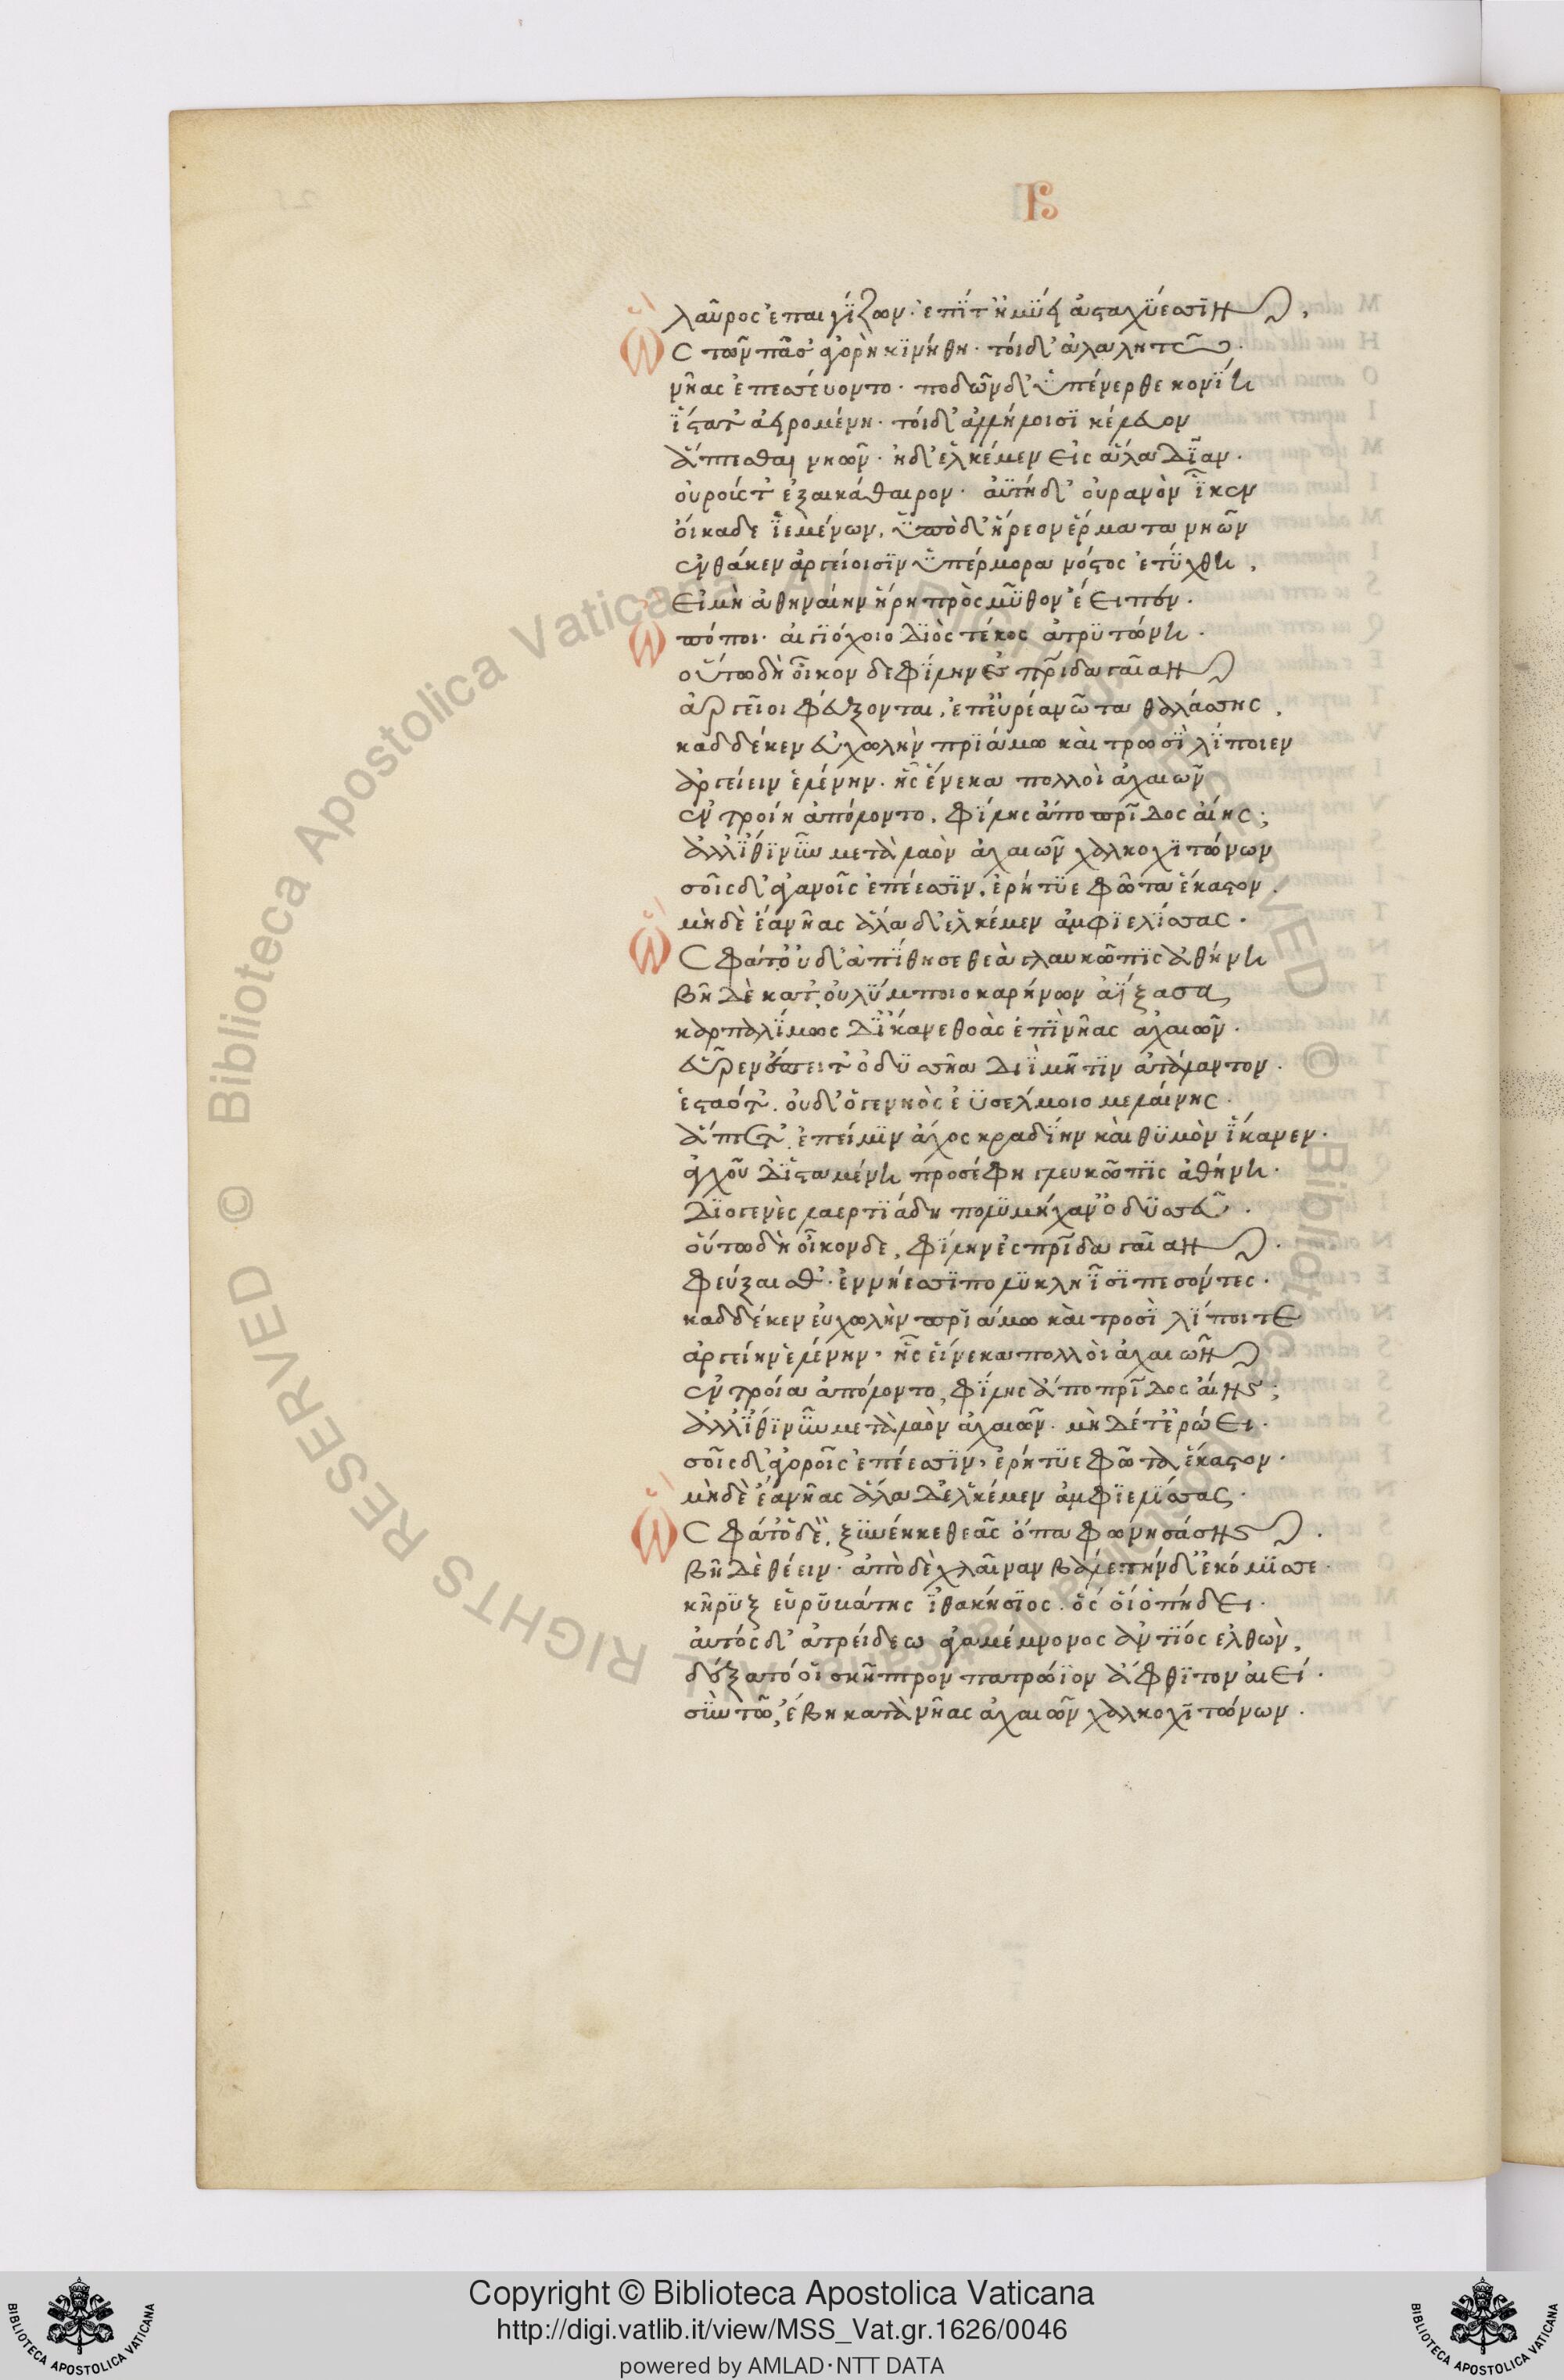 λαῦρος ἐπαιγΐζων· ἐπΐ τ' ἠμΰει ἀσταχΰεσσϊν,
Ὣς τῶν πᾶσ' ἀγορὴ κϊνήθη· τόι δ' ἀλαλητῶ·
νῆας ἐπεσσέυοντο· ποδῶν δ' ὑπένερθε κονΐη
ΐστατ' ἀειρομένη· τόι δ' ἀλλήλοισϊ κέλευον
ἅπτεσθαι νηῶν· ἠδ' ἑλκέμεν εἰς ἅλα δῖαν·
οὐρούς τ' ἐξακάθαιρον· ἀϋτὴ δ' οὐρανὸν ἷκεν
ὄικαδε ἱεμένων, ὑπὸ δ' ἥρεον ἕρματα νηῶν
ἐνθάκεν ἀργείοισϊν ὑπέρμορα νόστος ἐτΰχθη,
Εἰ μὴ ἀθηναίην ἥρη πρὸς μῦθον ἔειπεν·
Ὢ πόποι· αἰγϊόχοιο Δϊὸς τέκος ἀτρϋτώνη·
οὕτω δὴ οἶκον δε φΐλην ἐς πρῖδα γαῖαν
ἀργεῖοι φέυξονται, ἐπ' ἐυρέα νῶτα θαλάσσης,
καδδέκεν ἐυχωλὴν πρϊάμω καὶ τρωσῒ λΐποιεν
ἀργείειν ἑλένην· ἧς ἕνεκα πολλοὶ ἀχαιῶν
ἐν τροίη ἀπόλοντο, φΐλης ἀπο πρῖδος ἄιης;
ἀλλ' ΐθϊ νῦν μετὰ λαὸν ἀχαιῶν χαλκοχϊτώνων
σοῖς δ' ἀγανοῖς ἐπέεσσϊν, ἐρήτϋε φῶτα ἕκαστον·
μὴδὲ ἔα νῆας ἅλα δ' ἑλκέμεν ἀμφϊελΐσσας·
Ὣς φάτ' ὀυδ' ἀπΐθησε θεὰ γλαυκῶπϊς ἀθήνη
βῆ δὲ κατ' ὀυλΰμποιο καρήνων ἀΐξασα
καρπαλΐμως δ' ΐκανε θοὰς ἐπῒ νῆας ἀχαιῶν·
εὗρεν ἔπειτ' ὀδϋσσῆα Διῒ μῆτϊν ἀτάλαντον·
ἑσταότ'. ὀυδ' ὅγε νηὸς ἐϋσέλμοιο μελάινης·
ἅπτετ', ἐπεί μϊν ἄχος κραδΐην καὶ θϋμὸν ΐκανεν·
ἀγχοῦ δ' ΐσταμένη προσέφη γλευκῶπϊς ἀθήνη·
Δϊογενὲς λαερτϊάδη πολϋμήχαν' ὀδϋσσεῦ·
οὕτω δὴ οἶκονδε, φΐλην ἐς πρῖδα γαῖαν·
φεύξαισθ'· ἐν νήεσσϊ πολϋκλήϊσϊ πεσόντες·
καδδέκεν ἐυχωλὴν πρϊάμω καὶ τροσῒ λΐποιτε
ἀργείην ἑλένην, ἧς εἵνεκα πολλὸι ἀχαιῶν
ἐν τροία ἀπόλοντο, φΐλης ἄπο πρῖδος ἄιης;
ἀλλ' ΐθϊ νῦν μετὰ λαὸν ἀχαιῶν· μὴ δέ τ' ἐρώει·
σοῖς δ' ἀγοροῖς ἐπέεσσϊν, ἐρήτϋε φῶτα ἕκαστον·
μὴδὲ ἔα νῆας ἅλα δ' ἑλκέμεν ἀμφϊελΐσσας·
Ὣς φάτ' ὃ δὲ, ξϋνέηκε θεᾶς ὄπα φωνησάσης.
βῆ δὲ θέειν· ἀπὸ δὲ χλαῖναν βάλε· τήν δ' ἐκόμϊσσε·
κῆρϋξ εὐρϋβάτης ἰθακήσϊος. ὅς ὅι ὀπήδει·
ἀυτός δ' ἀτρείδεω ἀγαμέμνονος ἀντΐος ἐλθὼν,
δέξατό ὅι σκῆπτρον πατρώϊον ἄφθϊτον ἀιεί·
σῢν τῶ, ἔβη κατὰ νῆας ἀχαιῶν χαλκοχϊτώνων·
Copyright © Biblioteca Apostolica Vaticana
http://digi.vatlib.it/view/MSS_Vat.gr.1626/0046
powered by AMLAD·NTT DATA